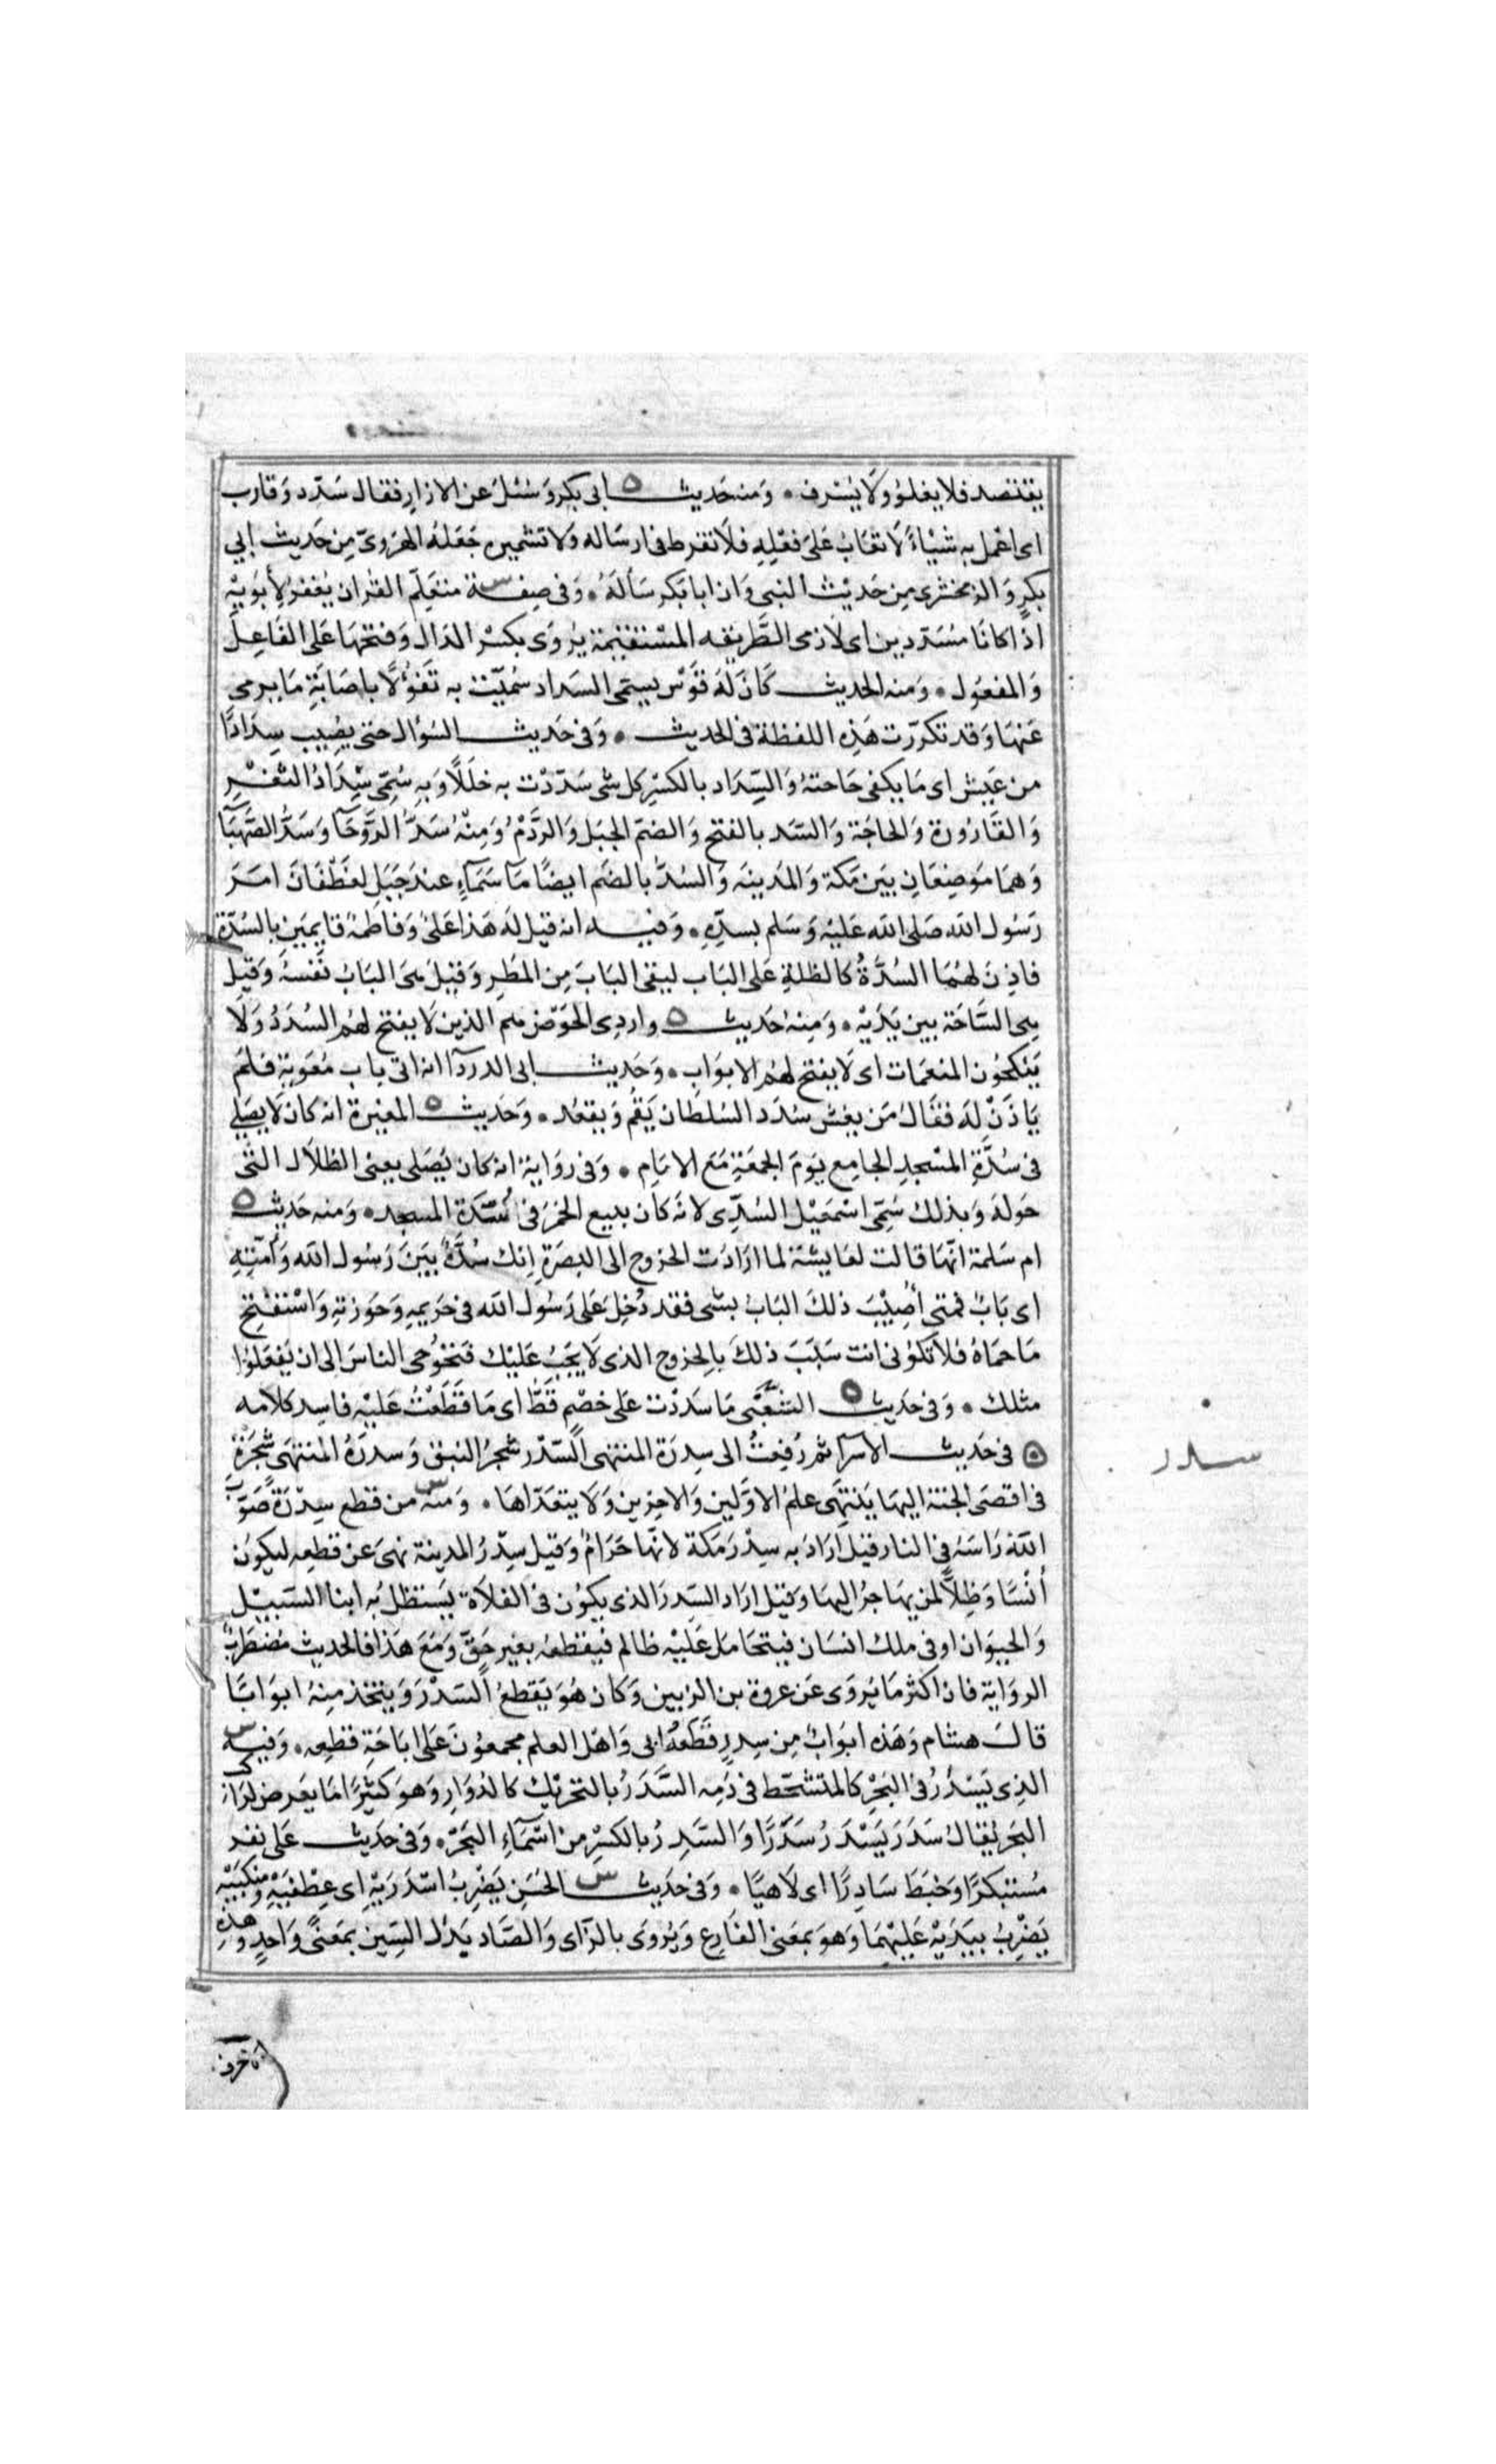 يقتصد فلا يغلو ولا يسرف ۰ ومنه حديث ابى بكر وسئل عن الازار فقال سدد وقارب
اى اعمل به شيئا لا تعاب على فعله فلا تفرط فى ارساله ولا تشميره جعله الهروى من حديث ابي
بكر والزمخشرى من حديث النبى وان ابا بكر سأله ۰ وفى صفة متعلم القران يغفر لأبويه
اذا كانا مسددين اى لازمى الطريقه المستقيمة يروى بكسر الدال وفتحها على الفاعل
والمفعول ۰ ومنه الحديث كان له قوس يسمى السداد سميت به تفؤلا باصابة ما يرمى
عنها وقد تكررت هذه اللفظة فى الحديث ۰ وفى حديث السؤال حتى يصيب سدادا
من عيش اى ما يكفى حاجته والسداد بالكسر كل شى سددت به خللا وبه سمى سداد الثغر
والقارورة والحاجة والسد بالفتح والضم الجبل والردم ومنه سد الروحآ وسد الصهبآ
وهما موضعان بين مكة والمدينه والسد بالضم ايضا مآ سمآء عند جبل لغطفان امر
رسول الله صلى الله عليه وسلم بسده ۰ وفيه انه قيل له هذا على وفاطمة قايمين بالسدة
فاذن لهما السدة كالظلة على الباب ليقى الباب من المطر وقيل هى الباب نفسه وقيل
هى الساحة بين يديه ۰ ومنه حديث واردى الحوض هم الذين لا يفتح لهم السدد ولا
ينكحون المنعمات اى لا يفتح لهم الابواب ۰ وحديث ابى الدردآ انه اتى باب معوية فلم
ياذن له فقال من يغش سدد السلطان يقم ويقعد ۰ وحديث المغيرة انه كان لا يصلي
فى سدة المسجد الجامع يوم الجمعة مع الامام ۰ وفى رواية انه كان يصلى يعنى الظلال التى
حوله وبذلك سمى اسمعيل السدى لانه كان يبيع الخمر فى سدة المسجد ۰ ومنه حديث
ام سلمة انها قالت لعايشة لما ارادت الخروج الى البصرة انك سدة بين رسول الله وأمته
اى باب فمتى أصيب ذلك الباب بشى فقد دخل على رسول الله فى حريمه وحوزته واستفتح
ما حماه فلا تكونى انت سبب ذلك بالخروج الذى لا يجب عليك فتخوجى الناس الى ان يفعلوا
مثلك ۰ وفى حديث الشعبى ما سددت على خصم قط اى ما قطعت عليه فاسد كلامه
فى حديث الاسرآ ثم رفعت الى سدرة المنتهى السدر شجر النبق وسدرة المنتهى شجرة
فى اقصى الجنة اليها ينتهى علم الاولين والاخرين ولا يتعداها ۰ ومنه من قطع سدرة صوب
الله راسه فى النار قيل اراد به سدر مكة لانها حرام وقيل سدر المدينة نهى عن قطعه ليكون
أنسا وظلا لمن يهاجر اليها وقيل اراد السدر الذى يكون فى الفلاة يستظل به ابنا السبيل
والحيوان او فى ملك انسان فيتحامل عليه ظالم فيقطعه بغير حق ومع هذا فالحديث مضطرب
الرواية فان اكثر ما يروى عن عروة بن الزبير وكان هو يقطع السدر ويتخذ منه ابوابا
قال هشام وهذه ابواب من سدر قطعه ابى واهل العلم مجمعون على اباحة قطعه ۰ وفيه
الذى يسدر فى البحر كالمتشحط فى دمه السدر بالتحريك كالدوار وهو كثيرا ما يعرض لراكب
البحر يقال سدر يسدر سدرا والسدر بالكسر من اسمآء البحر ۰ وفى حديث على نفر
مستكبرا وخبط سادرا اى لاهيا ۰ وفى حديث الحسن يضرب اسدريه اى عطفيه ومنكبيه
يضرب بيديه عليهما وهو بمعنى الفارع ويروى بالزاى والصاد بدل السين بمعنى واحد وهذه
سدر